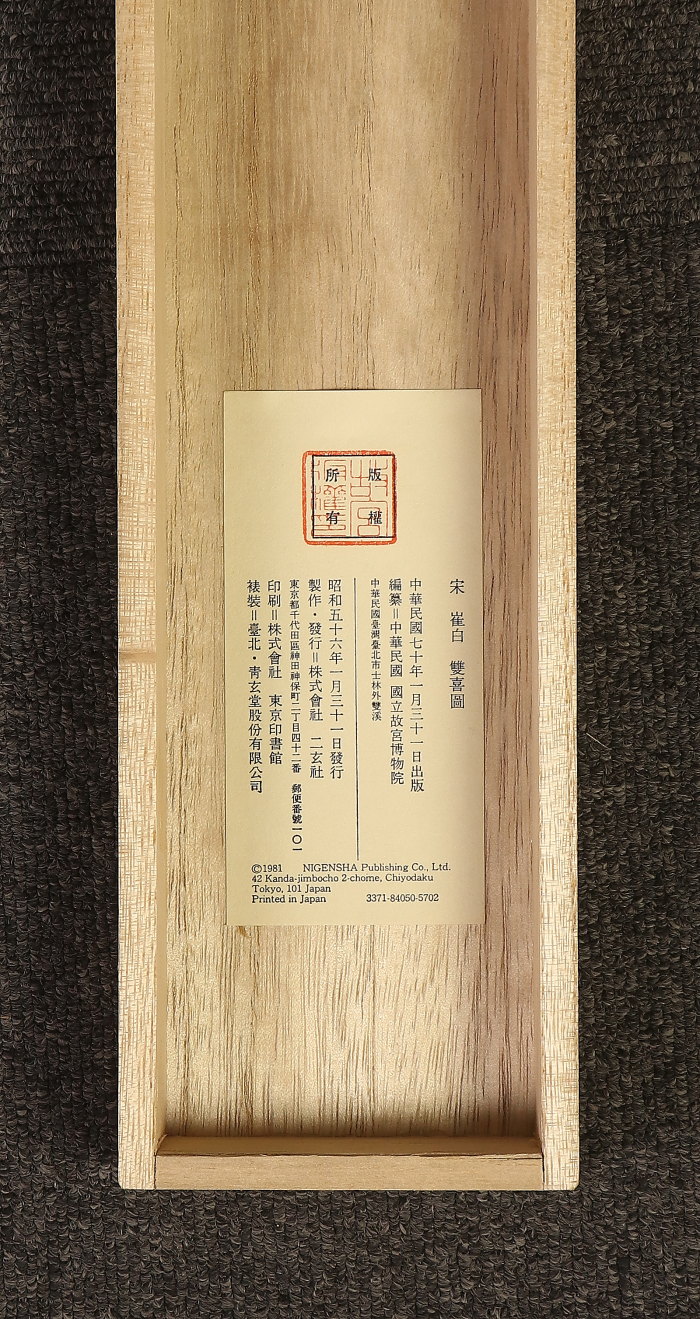 版權
所有
宋　崔白　雙喜圖
中華民國七十年一月三十一日出版
編纂＝中華民國　國立故宮博物院
中華民國臺灣臺北市士林外雙溪
昭和五十六年一月三十一日發行
製作・發行＝株式會社　二玄社
東京都千代田區神田神保町二丁目四十二番　郵便番號一〇一
印刷＝株式會社　東京印書館
裱裝＝臺北・靑玄堂股份有限公司
©1981　NIGENSHA Publishing Co., Ltd.
42 Kanda-jimbocho 2-chome, Chiyodaku
Tokyo, 101 Japan
Printed in Japan　3371-84050-5702